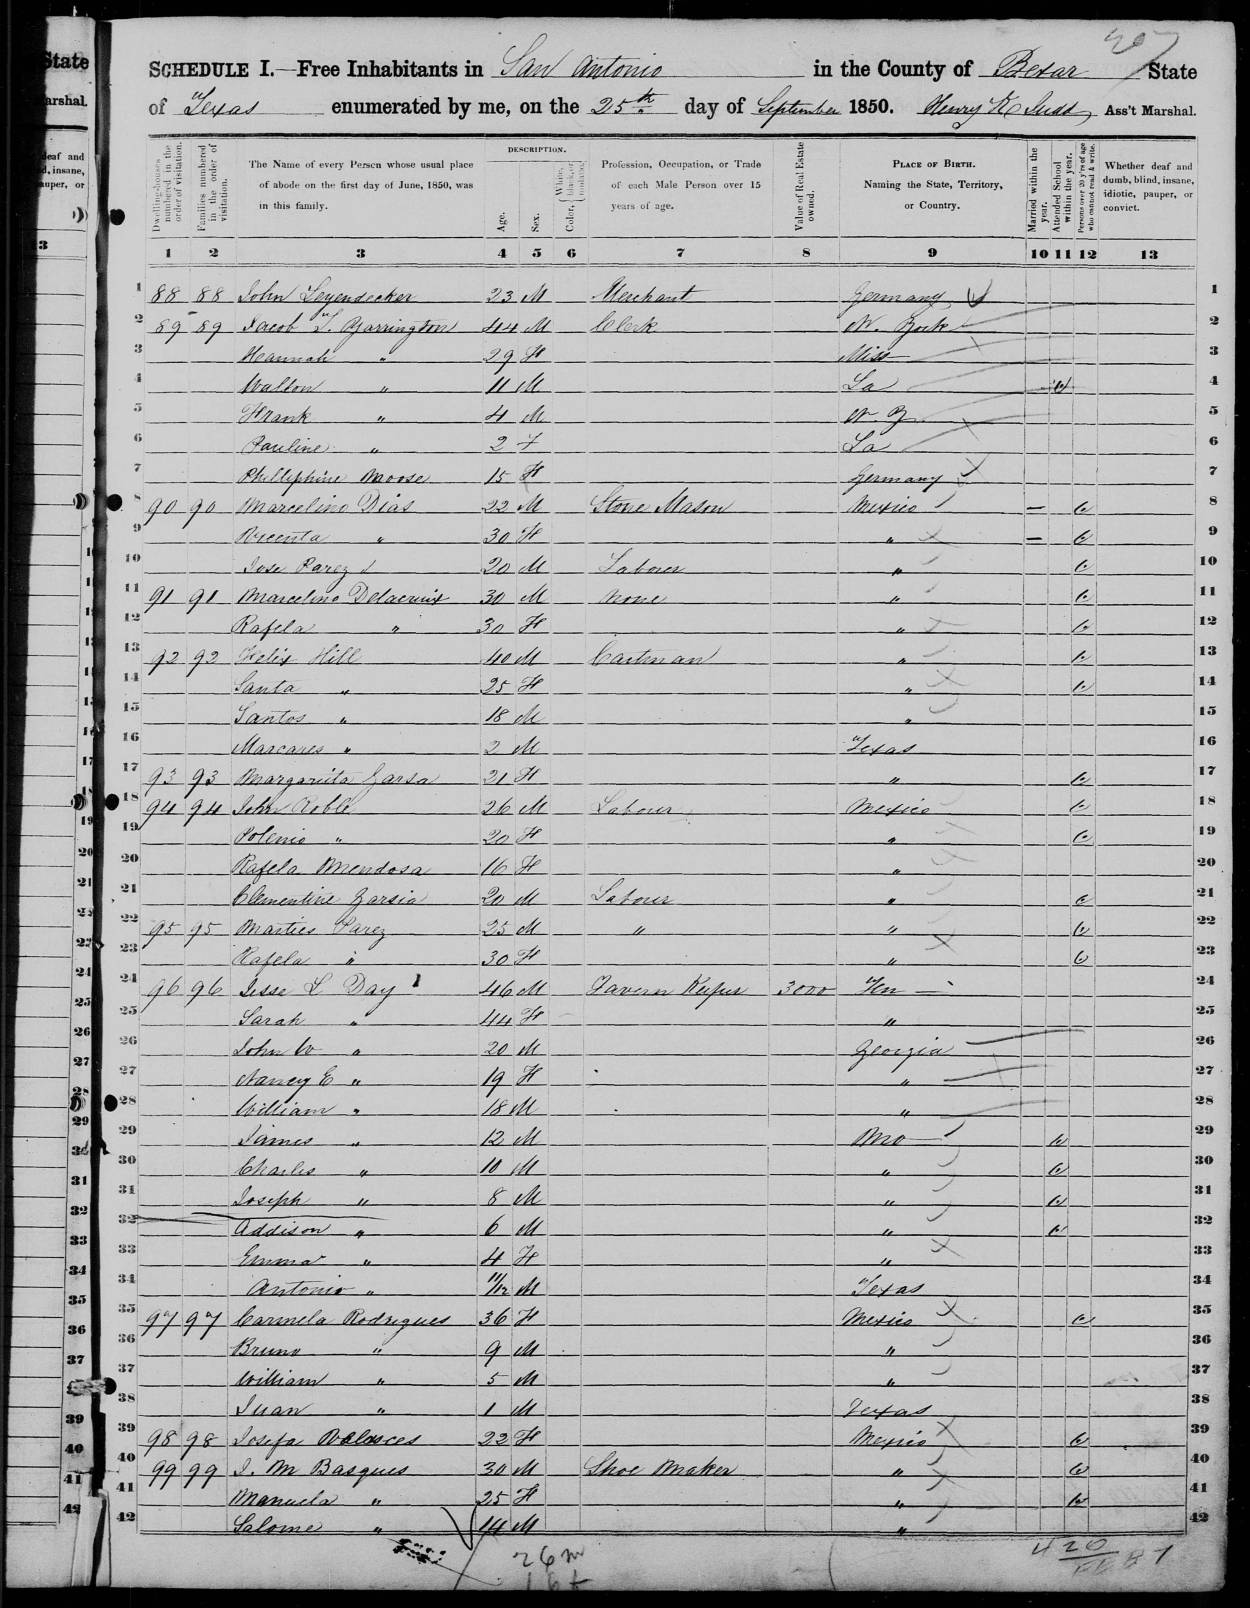 State
arshal.
deaf and
d, insane,
auper, or
13
SCHEDULE I.—Free Inhabitants in San Antonio in the County of Bexar State
of Texas enumerated by me, on the 25th day of September 1850. Henry K Judd, Ass't Marshal.
Dwelling-houses numbered in the order of visitation.
Families numbered in the order of visitation.
The Name of every Person whose usual place of abode on the first day of June, 1850, was in this family.
DESCRIPTION.
Age.
Sex.
Color, White, black, or mulatto.
Profession, Occupation, or Trade of each Male Person over 15 years of age.
Value of Real Estate owned.
PLACE OF BIRTH. Naming the State, Territory, or Country.
Married within the year.
Attended School within the year.
Persons over 20 y'rs of age who cannot read & write.
Whether deaf and dumb, blind, insane, idiotic, pauper, or convict.
1 2 3 4 5 6 7 8 9 10 11 12 13
1 88 88 John Leyendecker 23 M Merchant Germany 1
2 89 89 Jacob T. Yarrington 44 M Clerk N. York 2
3 Hannah " 29 F Miss 3
4 Walton " 11 M La 4
5 Frank " 4 M N. Y. 5
6 Pauline " 2 F La 6
7 Phillephine Moose 15 F Germany 7
8 90 90 Marcelino Dias 22 M Stone Mason Mexico 8
9 Vicenta " 30 F " 9
10 Jose Parez 20 M Laborer " 10
11 91 91 Marcelino Delacruix 30 M None " 11
12 Rafela " 30 F " 12
13 92 92 Felix Hill 40 M Cartman " 13
14 Santa " 25 F " 14
15 Santos " 18 M " 15
16 Marcares " 2 M Texas 16
17 93 93 Margariita Garsa 21 F " 17
18 94 94 John Roblo 26 M Labour Mexico 18
19 Polenio " 20 F " 19
20 Rafela Mendosa 16 F " 20
21 Clementine Garsia 20 M Labour " 21
22 95 95 Marties Parez 25 M " " 22
23 Rafela " 30 F " 23
24 96 96 Jesse L Day 46 M Tavern Keeper 3000 Ten 24
25 Sarah " 44 F " 25
26 John W " 20 M Georgia 26
27 Nancy E " 19 F " 27
28 William " 18 M " 28
29 James " 12 M Mo 29
30 Charles " 10 M " 30
31 Joseph " 8 M " 31
32 Addison " 6 M " 32
33 Emma " 4 F " 33
34 Antonio " 11/12 M Texas 34
35 97 97 Carmela Rodrigues 36 F Mexico 35
36 Bruno " 9 M " 36
37 William " 5 M " 37
38 Juan " 1 M Texas 38
39 98 98 Josefa 22 F Mexico 39
40 99 99 J. M Basques 30 M Shoe Maker " 40
41 Manuela " 25 F " 41
42 Salome " 14 M " 42
26 m